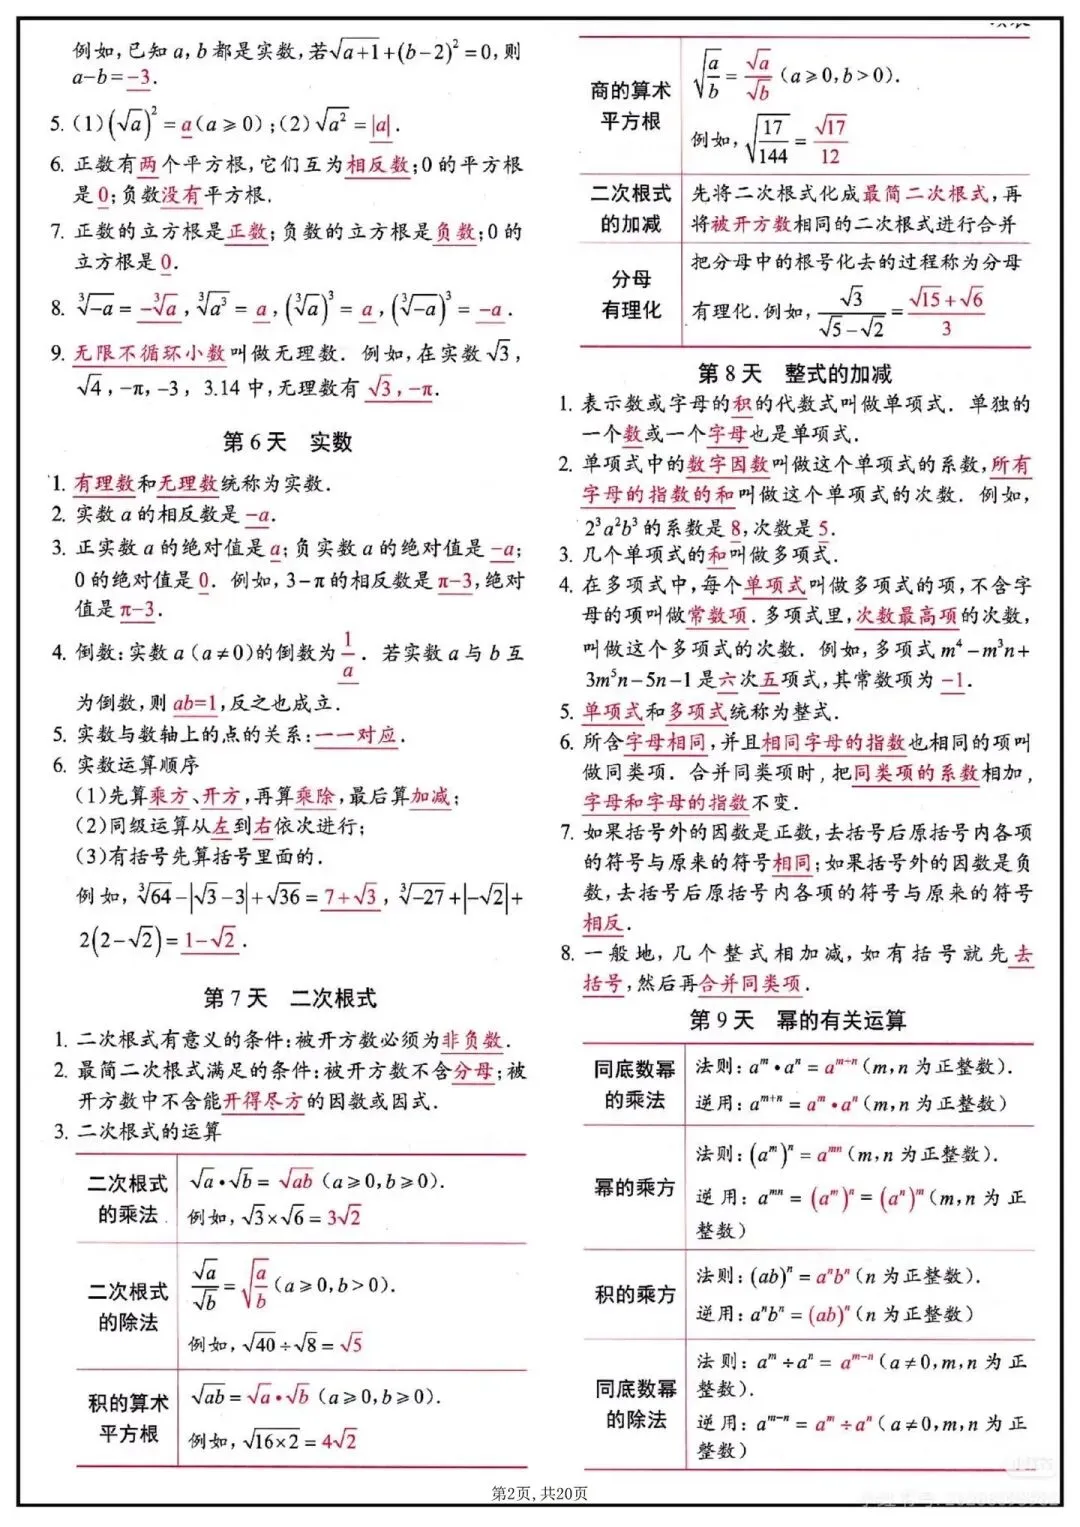 例如,已知a,b都是实数,若√(a+1)+(b-2)²=0,则
a-b=-3.
5. (1)(√a)²=a(a≥0);(2)√a²=|a|.
6. 正数有两个平方根,它们互为相反数;0的平方根
是0;负数没有平方根.
7. 正数的立方根是正数;负数的立方根是负数;0的
立方根是0.
8. ∛(-a)=-∛a,∛a³=a,(∛a)³=a,(∛(-a))³=-a.
9. 无限不循环小数叫做无理数. 例如,在实数√3,
√4,-π,-3, 3.14中,无理数有√3,-π.
第6天 实数
1. 有理数和无理数统称为实数.
2. 实数a的相反数是-a.
3. 正实数a的绝对值是a;负实数a的绝对值是-a;
0的绝对值是0. 例如,3-π的相反数是π-3,绝对
值是π-3.
4. 倒数:实数a(a≠0)的倒数为1/a. 若实数a与b互
为倒数,则ab=1,反之也成立.
5. 实数与数轴上的点的关系:一一对应.
6. 实数运算顺序
(1)先算乘方、开方,再算乘除,最后算加减;
(2)同级运算从左到右依次进行;
(3)有括号先算括号里面的.
例如,∛64-|√3-3|+√36=7+√3,∛(-27)+|-√2|+
2(2-√2)=1-√2.
第7天 二次根式
1. 二次根式有意义的条件:被开方数必须为非负数.
2. 最简二次根式满足的条件:被开方数不含分母;被
开方数中不含能开得尽方的因数或因式.
3. 二次根式的运算
二次根式
的乘法
√a·√b=√(ab)(a≥0,b≥0).
例如,√3×√6=3√2
二次根式
的除法
√a/√b=√(a/b)(a≥0,b>0).
例如,√40÷√8=√5
积的算术
平方根
√(ab)=√a·√b(a≥0,b≥0).
例如,√(16×2)=4√2
商的算术
平方根
√(a/b)=√a/√b(a≥0,b>0).
例如,√(17/144)=√17/12
二次根式
的加减
先将二次根式化成最简二次根式,再
将被开方数相同的二次根式进行合并
分母
有理化
把分母中的根号化去的过程称为分母
有理化.例如,√3/(√5-√2)=(√15+√6)/3
第8天 整式的加减
1. 表示数或字母的积的代数式叫做单项式. 单独的
一个数或一个字母也是单项式.
2. 单项式中的数字因数叫做这个单项式的系数,所有
字母的指数的和叫做这个单项式的次数. 例如,
2³a²b³的系数是8,次数是5.
3. 几个单项式的和叫做多项式.
4. 在多项式中,每个单项式叫做多项式的项,不含字
母的项叫做常数项.多项式里,次数最高项的次数,
叫做这个多项式的次数. 例如,多项式m⁴-m³n+
3m⁵n-5n-1是六次五项式,其常数项为-1.
5. 单项式和多项式统称为整式.
6. 所含字母相同,并且相同字母的指数也相同的项叫
做同类项. 合并同类项时,把同类项的系数相加,
字母和字母的指数不变.
7. 如果括号外的因数是正数,去括号后原括号内各项
的符号与原来的符号相同;如果括号外的因数是负
数,去括号后原括号内各项的符号与原来的符号
相反.
8. 一般地,几个整式相加减,如有括号就先去
括号,然后再合并同类项.
第9天 幂的有关运算
同底数幂
的乘法
法则:aᵐ·aⁿ=aᵐ⁺ⁿ(m,n为正整数).
逆用:aᵐ⁺ⁿ=aᵐ·aⁿ(m,n为正整数)
幂的乘方
法则:(aᵐ)ⁿ=aᵐⁿ(m,n为正整数).
逆用:aᵐⁿ=(aᵐ)ⁿ=(aⁿ)ᵐ(m,n为正
整数)
积的乘方
法则:(ab)ⁿ=aⁿbⁿ(n为正整数).
逆用:aⁿbⁿ=(ab)ⁿ(n为正整数)
同底数幂
的除法
法则:aᵐ÷aⁿ=aᵐ⁻ⁿ(a≠0,m,n为正
整数).
逆用:aᵐ⁻ⁿ=aᵐ÷aⁿ(a≠0,m,n为正
整数)
第2页,共20页